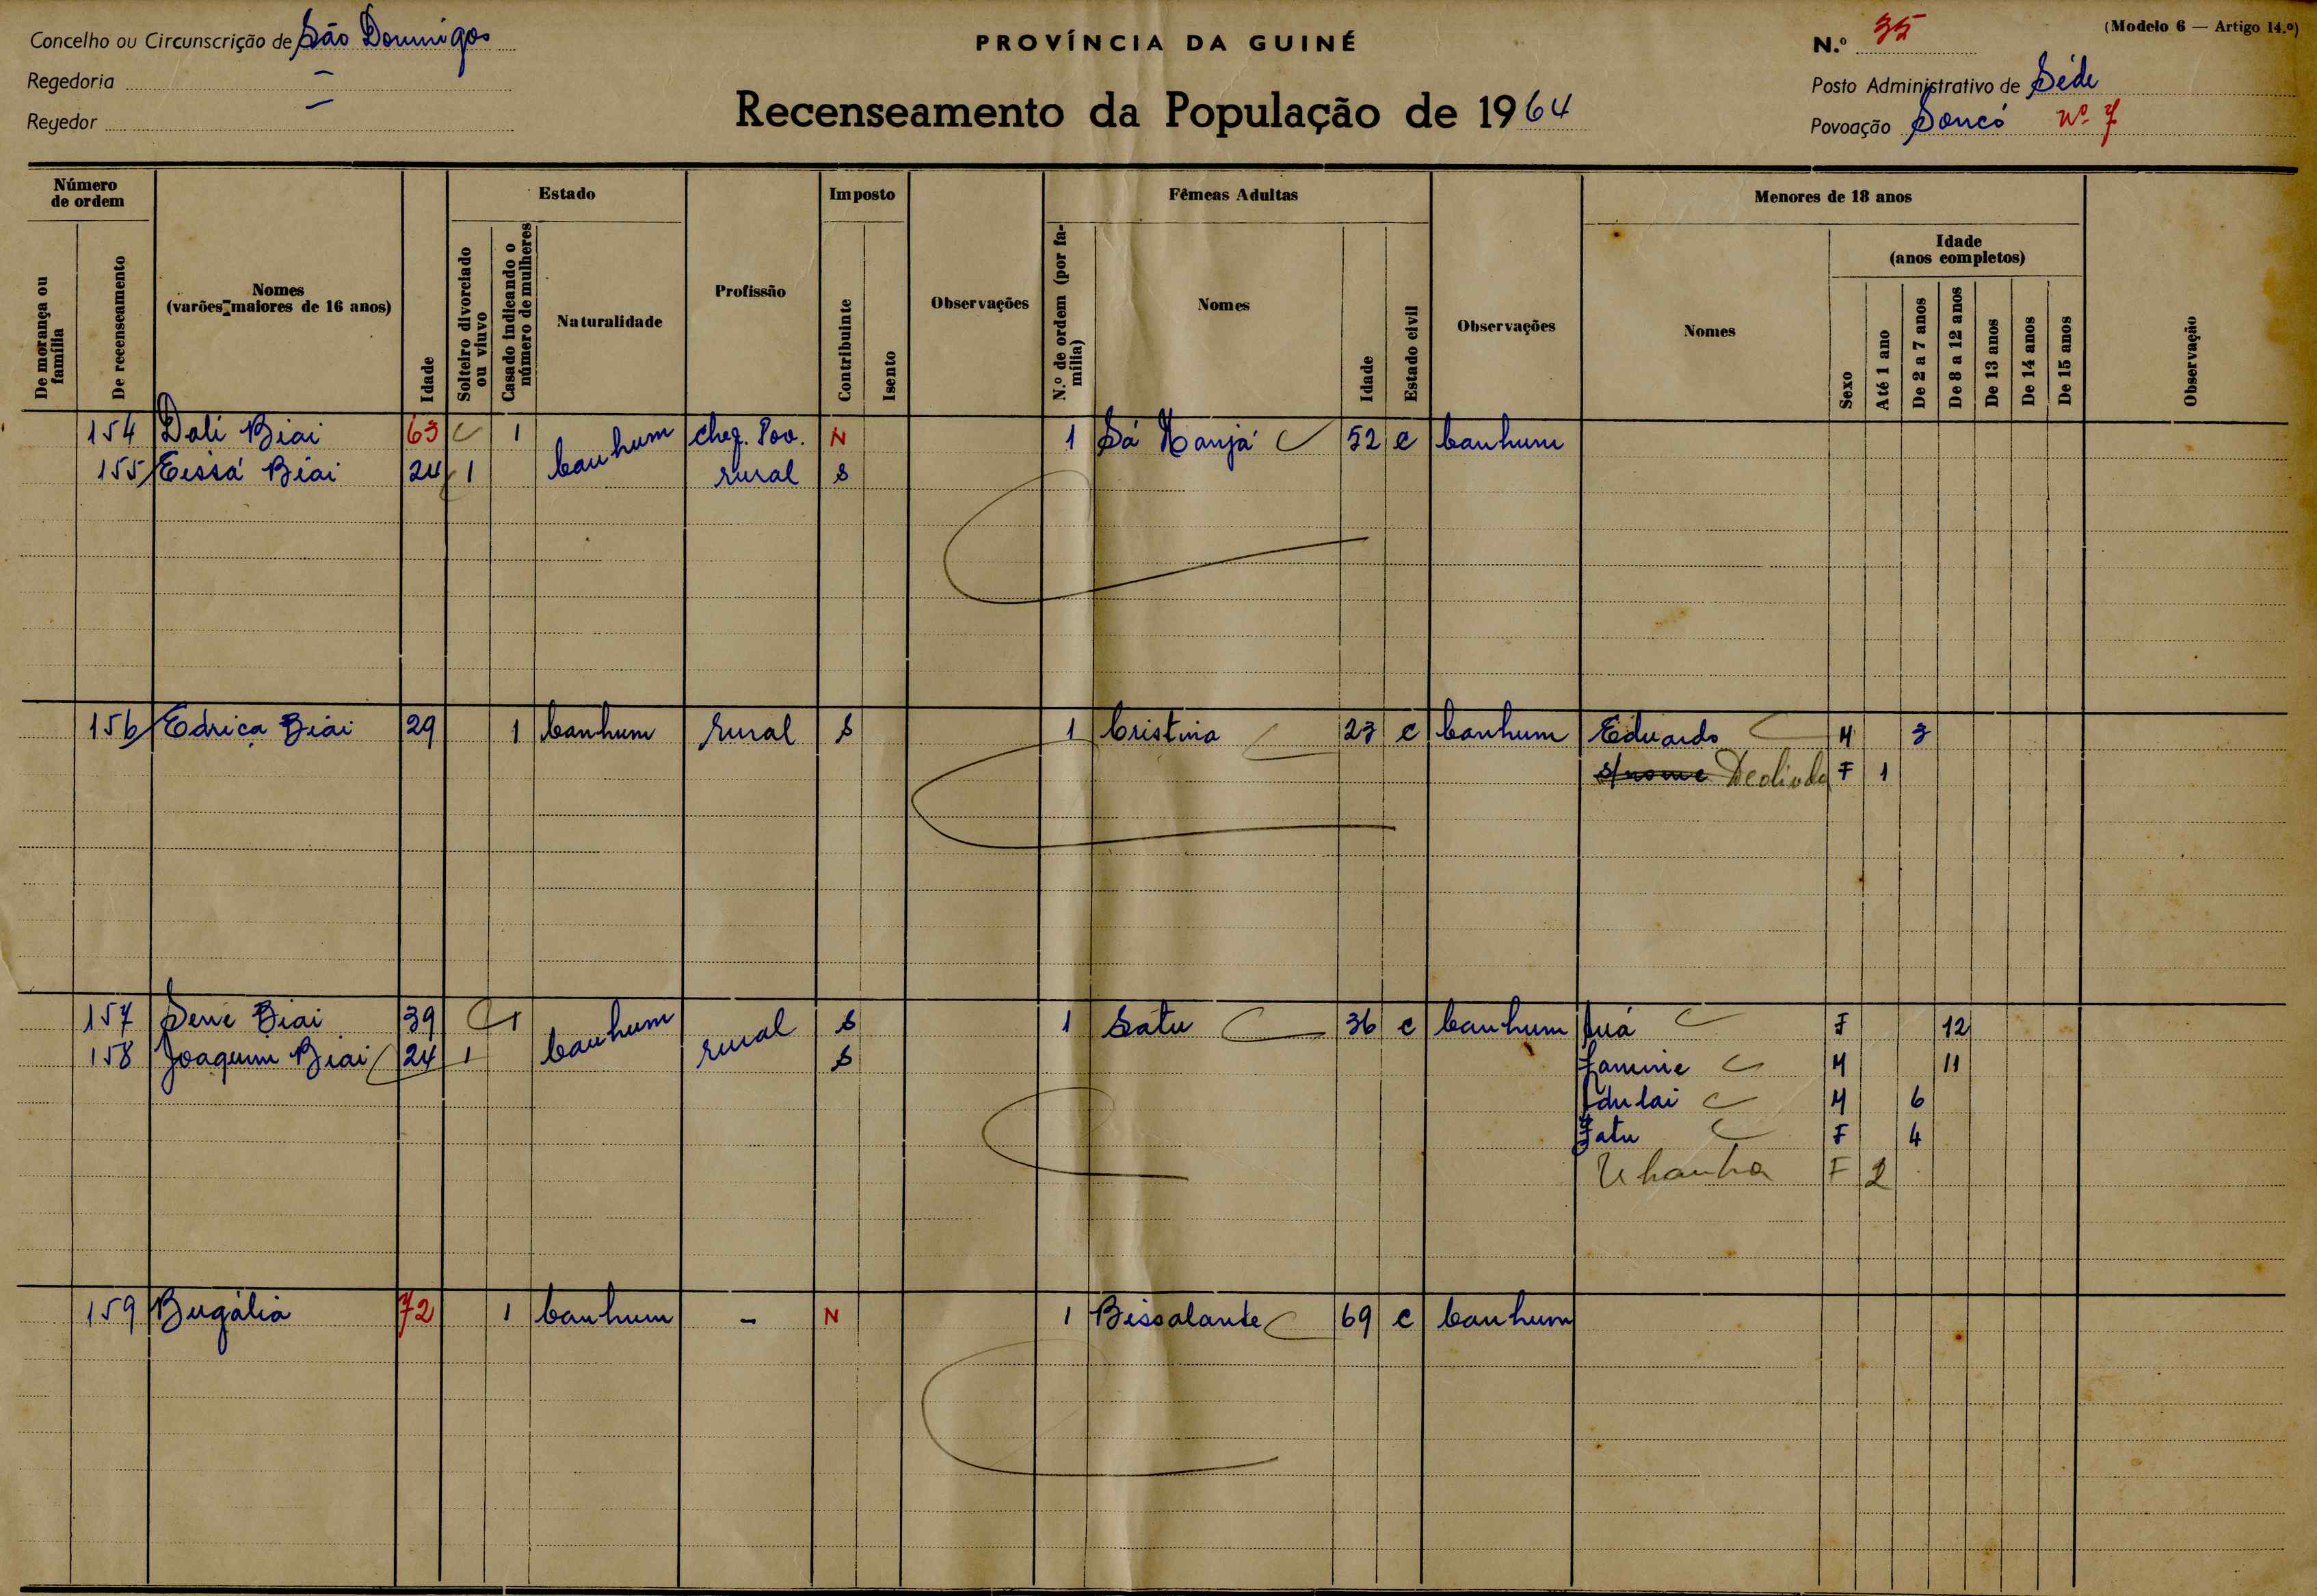 Concelho ou Circunscrição de São Domingos
PROVÍNCIA DA GUINÉ
N.º 35
(Modelo 6 — Artigo 14.º)
Regedoria —
Regedor —
Recenseamento da População de 1964
Posto Administrativo de Séde
Povoação Soncó nº 7
Número de ordem
Estado
Imposto
Fêmeas Adultas
Menores de 18 anos
De morança ou família
De recenseamento
Nomes (varões maiores de 16 anos)
Idade
Solteiro divorciado ou viuvo
Casado indicando o número de mulheres
Naturalidade
Profissão
Contribuinte
Isento
Observações
N.º de ordem (por família)
Nomes
Idade
Estado civil
Observações
Nomes
Sexo
Idade (anos completos)
Até 1 ano
De 2 a 7 anos
De 8 a 12 anos
De 13 anos
De 14 anos
De 15 anos
Observação
154 Dali Biai 63 1 banhum chef. Pov. N 1 Sá Manjá 52 c banhum
155 Eissá Biai 24 1 rural S
156 Edriça Biai 29 1 banhum rural S 1 Cristina 23 c banhum Eduardo M 3
s/nome Deolinda F 1
157 Sene Biai 39 1 banhum rural S 1 Satu 36 c banhum F 12
158 Joaquim Biai 24 1 S Lamine M 11
M 6
Fatu F 4
F 2
159 Bugália 72 1 banhum - N 1 Bissalante 69 c banhum